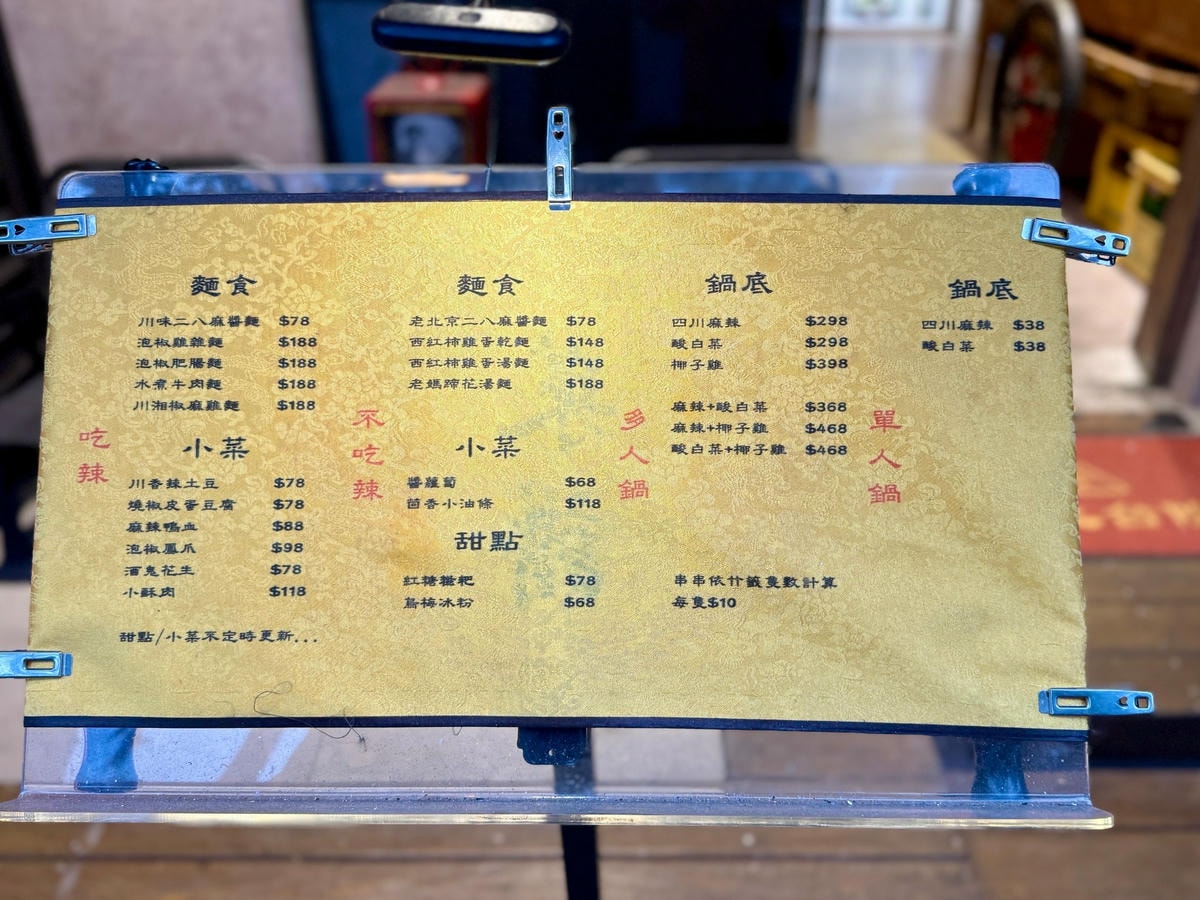 吃辣
麵食
川味二八麻醬麵 $78
泡椒雞雜麵 $188
泡椒肥腸麵 $188
水煮牛肉麵 $188
川湘椒麻雞麵 $188
小菜
川香辣土豆 $78
燒椒皮蛋豆腐 $78
麻辣鴨血 $88
泡椒鳳爪 $98
酒鬼花生 $78
小酥肉 $118
甜點/小菜不定時更新...
不吃辣
麵食
老北京二八麻醬麵 $78
西紅柿雞蛋乾麵 $148
西紅柿雞蛋湯麵 $148
老媽蹄花湯麵 $188
小菜
醬蘿蔔 $68
茴香小油條 $118
甜點
紅糖糍粑 $78
烏梅冰粉 $68
多人鍋
鍋底
四川麻辣 $298
酸白菜 $298
椰子雞 $398
麻辣+酸白菜 $368
麻辣+椰子雞 $468
酸白菜+椰子雞 $468
串串依竹籤隻數計算
每隻$10
單人鍋
鍋底
四川麻辣 $38
酸白菜 $38